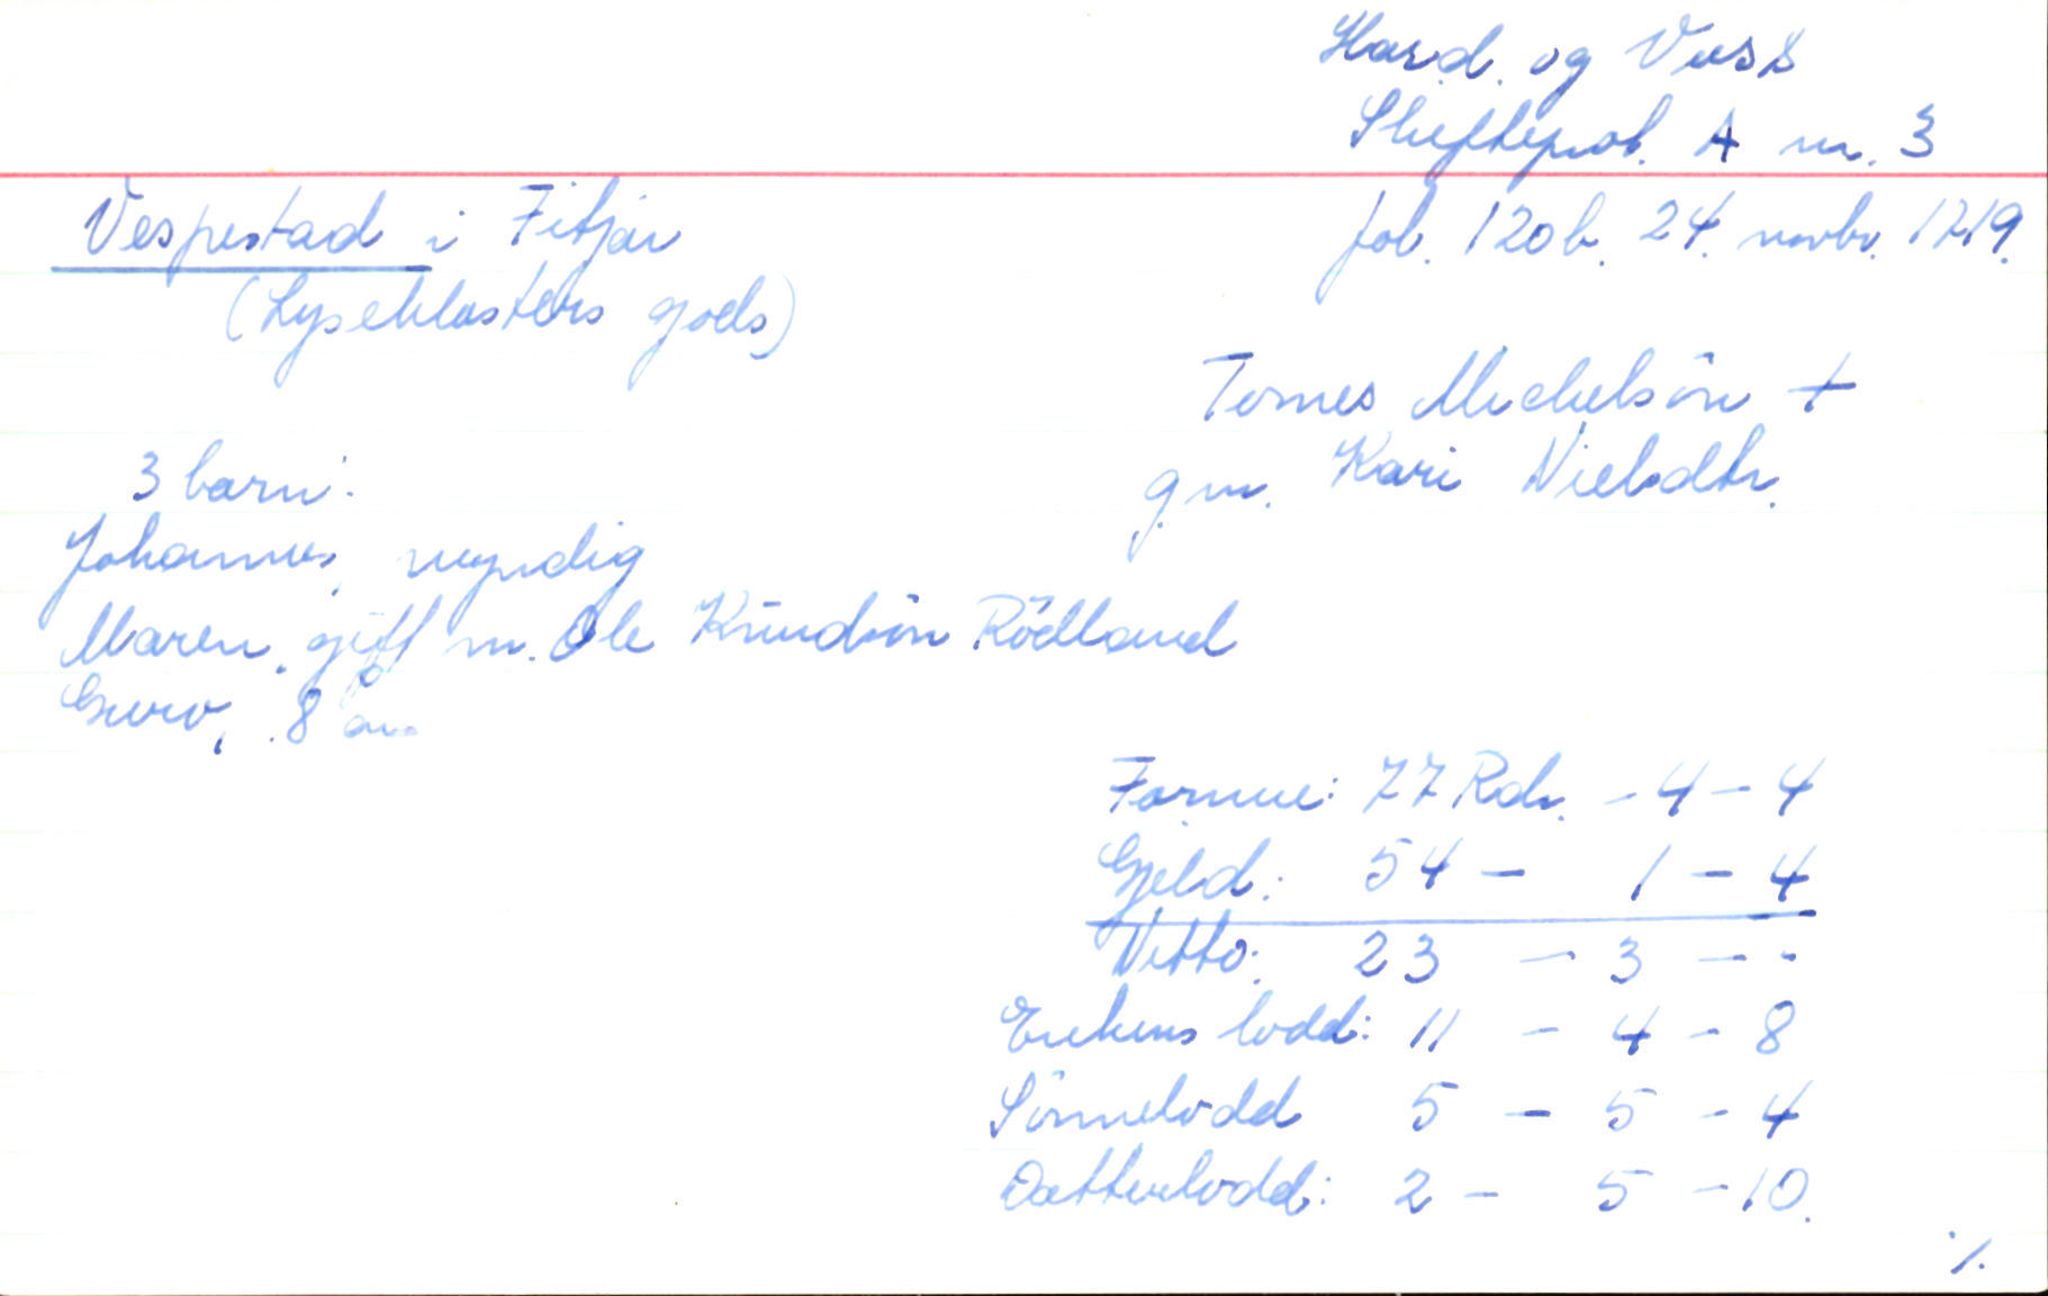 Hard. og Voss
Skifteprot. A nr. 3
Vespestad i Fitjar
fol. 120b. 24. novbr. 1719.
(Lyseklosters gods)
Tomes Michelsön +
g.m. Kari Nielsdtr.
3 barn:
Johannes, myndig
Maren, gift m. Ole Knudsön Rödland
Guro, 8 år
Formue: 77 Rdr. - 4 - 4
Gjeld: 54 - 1 - 4
Netto: 23 - 3 - -
Enkens lodd: 11 - 4 - 8
Sönnelodd 5 - 5 - 4
Datterlodd: 2 - 5 - 10.
./.